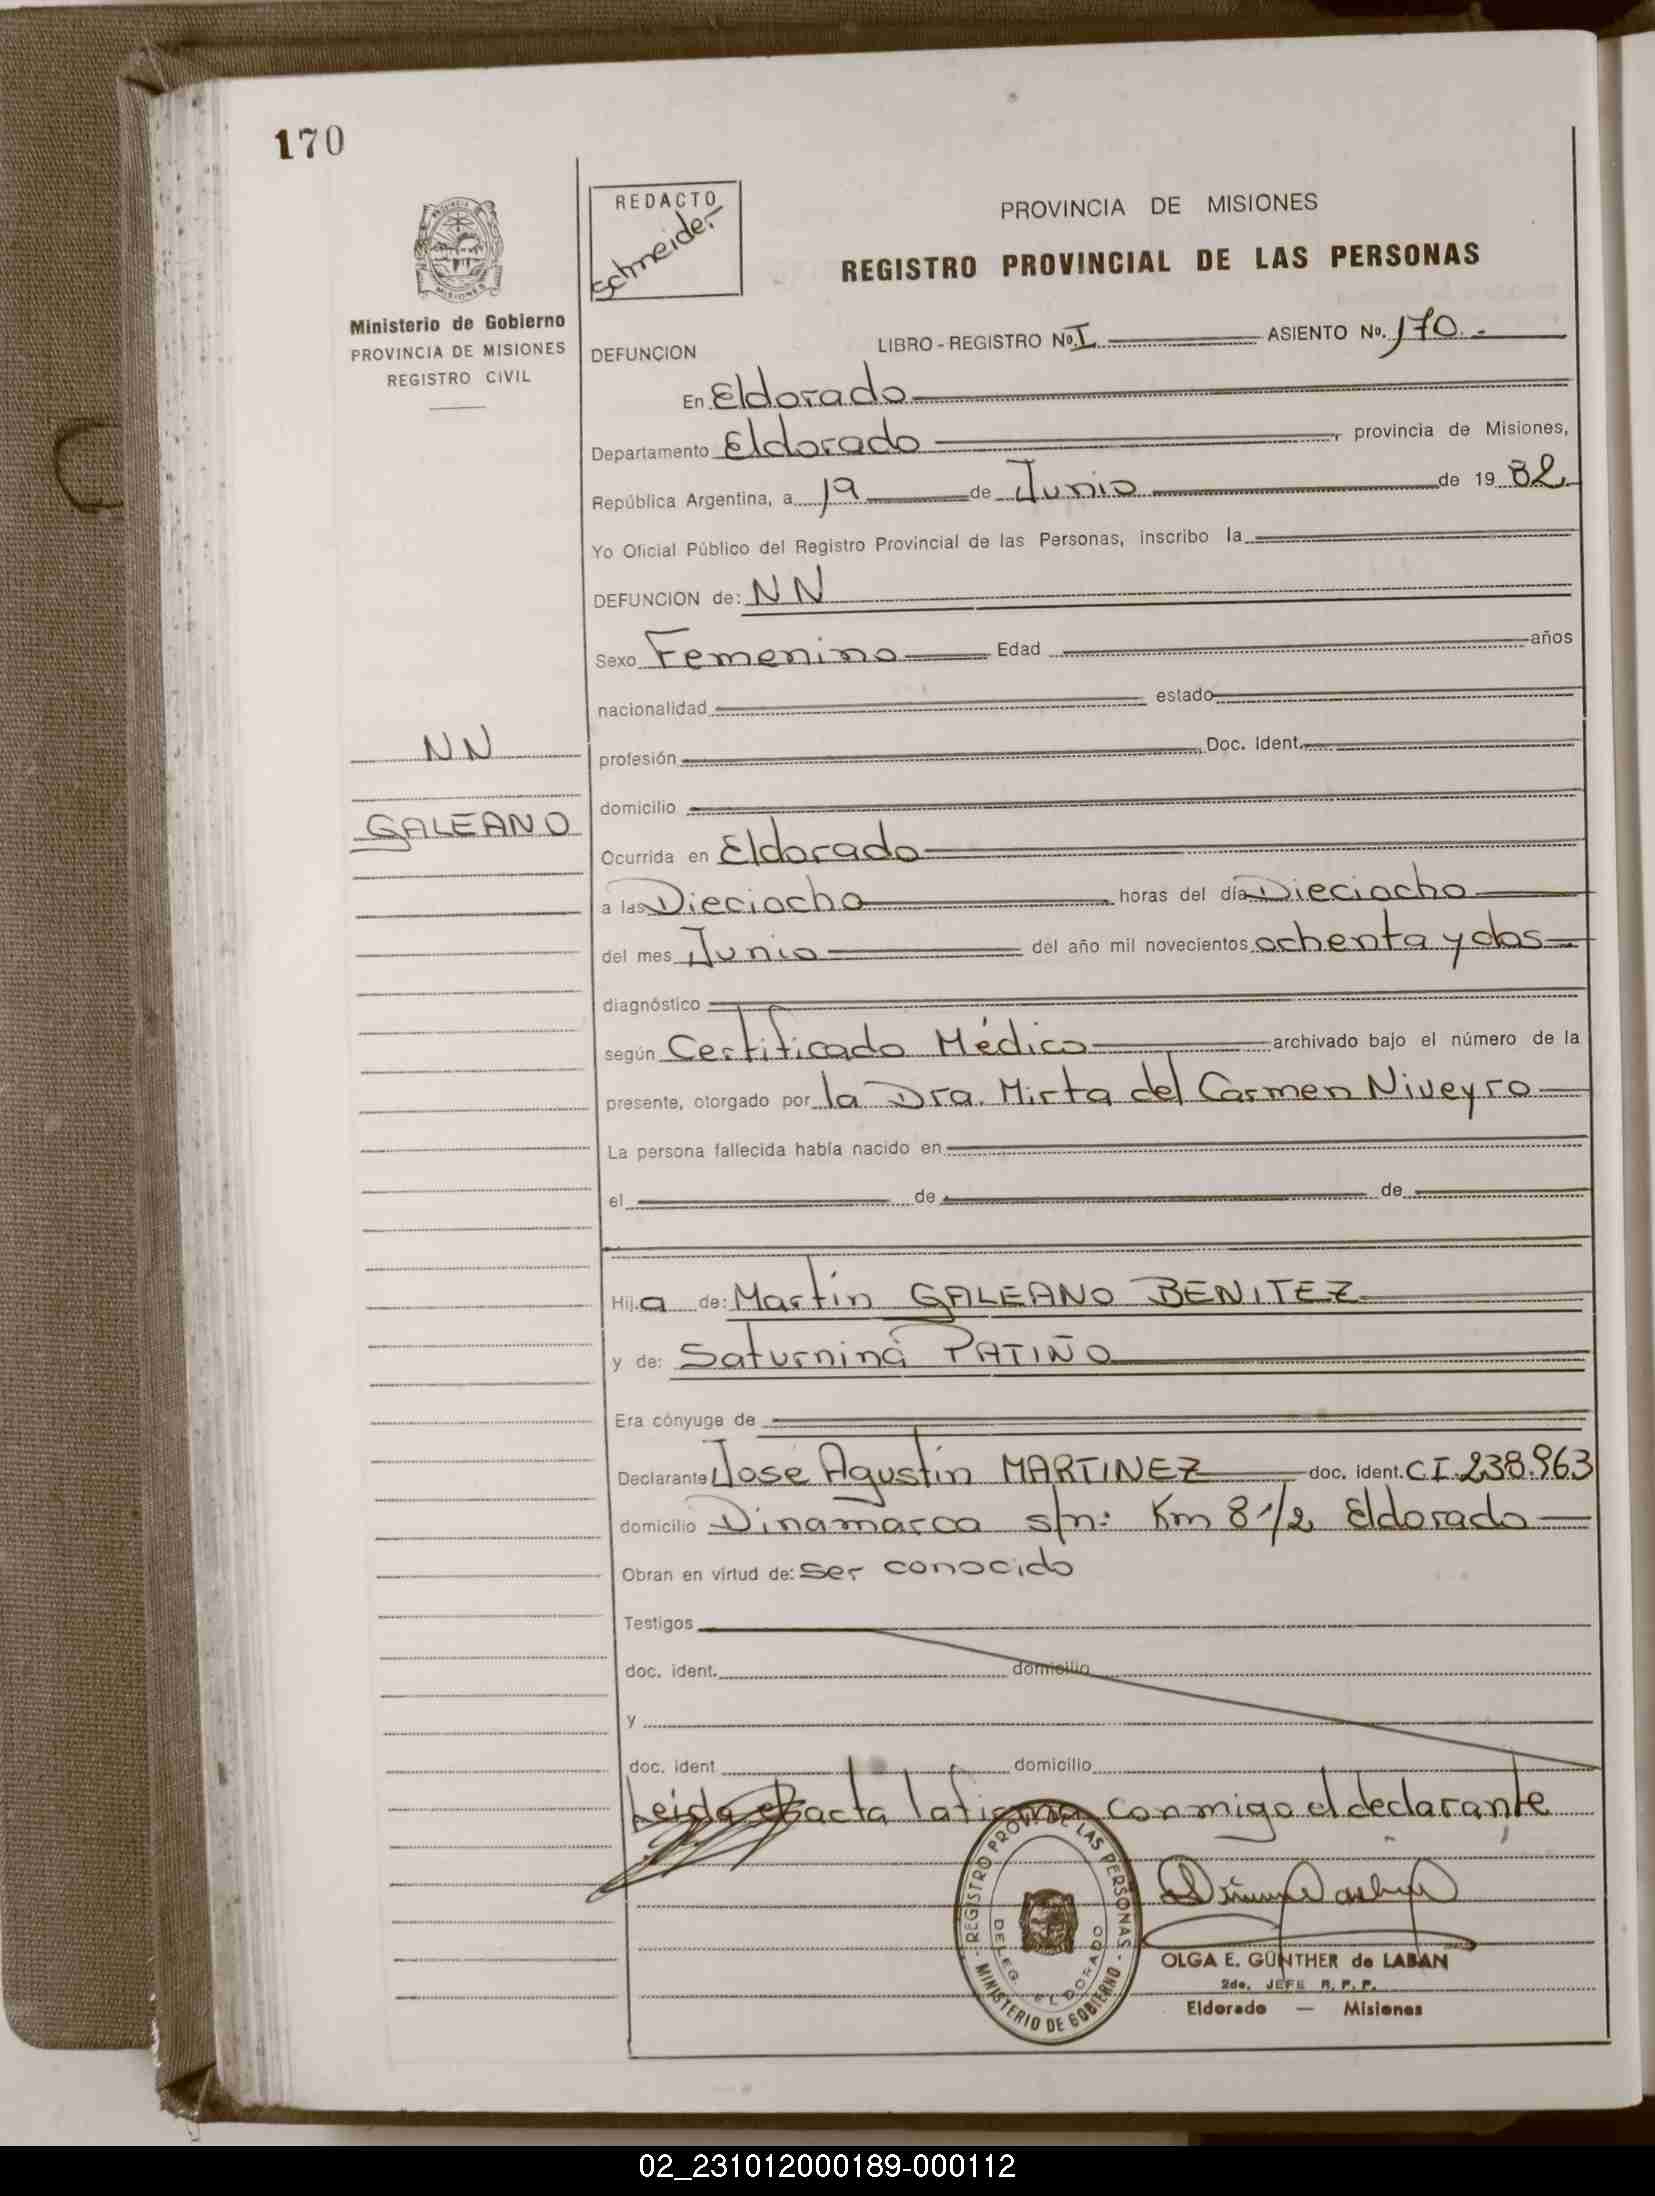 170
REDACTO
Schneider.-
PROVINCIA DE MISIONES
REGISTRO PROVINCIAL DE LAS PERSONAS
Ministerio de Gobierno
PROVINCIA DE MISIONES
REGISTRO CIVIL
DEFUNCION LIBRO - REGISTRO Nº. I ASIENTO Nº. 170.-
En Eldorado
Departamento Eldorado, provincia de Misiones,
República Argentina, a 19 de Junio de 19 82
Yo Oficial Público del Registro Provincial de las Personas, inscribo la
DEFUNCION de: NN
Sexo Femenino Edad años
nacionalidad estado
NN
profesión Doc. Ident.
domicilio
GALEANO
Ocurrida en Eldorado
a las Dieciocho horas del día Dieciocho
del mes Junio del año mil novecientos ochenta y dos
diagnóstico
según Certificado Médico archivado bajo el número de la
presente, otorgado por la Dra. Mirta del Carmen Niveyro
La persona fallecida había nacido en
el de de
Hija de: Martín GALEANO BENITEZ
y de: Saturnina PATIÑO
Era cónyuge de
Declarante José Agustín MARTINEZ doc. ident. C I. 238.963
domicilio Dinamarca s/n: Km 8 1/2 Eldorado
Obran en virtud de: ser conocido
Testigos
doc. ident. domicilio
y
doc. ident domicilio
Leida el acta la firma conmigo el declarante
REGISTRO PROV. DE LAS PERSONAS - MINISTERIO DE GOBIERNO -
DELEG. ELDORADO
OLGA E. GÜNTHER de LABAN
2do. JEFE R. P. P.
Eldorado — Misiones
02_231012000189-000112